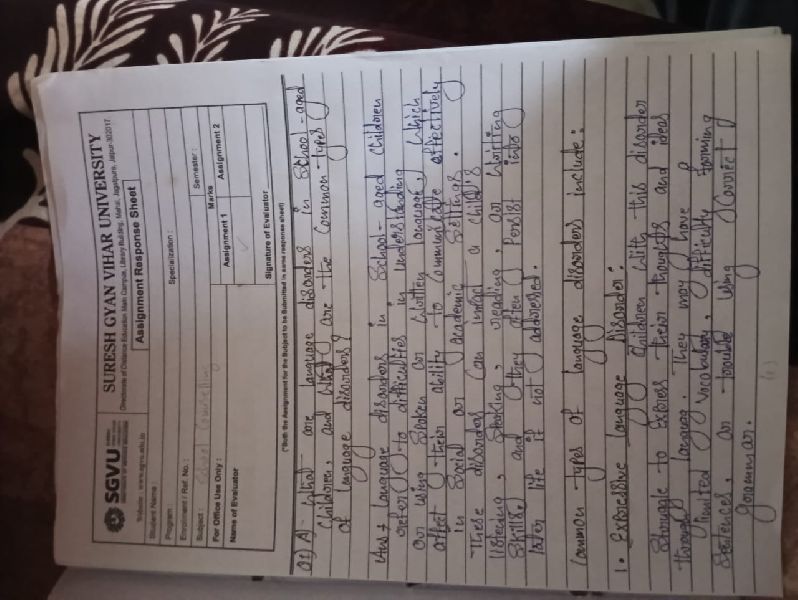 SGVU
SURESH GYAN VIHAR UNIVERSITY
Directorate of Distance Education Main Campus, Library Building, Mahal, Jagatpura, Jaipur-302017
Website : www.sgvu.edu.in
Assignment Response Sheet
Student Name :
Program :
Specialization :
Enrollment / Ref. No. :
Semester :
Subject : School Counselling
For Office Use Only :
Marks
Name of Evaluator
Assignment 1
Assignment 2
Signature of Evaluator
(*Both the Assignment for the Subject to be Submitted in same response sheet)
Q1) A) - What are language disorders in School-aged
Children, and What are the Common types
of language disorders?
Ans → Language disorders in School-aged Children
refer to difficulties in understanding
or using Spoken or Written language, Which
affect their ability to Communicate effectively
in Social or academic Settings.
These disorders Can impact a child's
listening, Speaking, reading, or Writing
Skills, and they often Persist into
later life if not addressed.
Common types of language disorders include:
1. Expressive Language Disorder:
Children With this disorder
Struggle to Express their thoughts and ideas
through language. They may have
limited Vocabulary, difficulty forming
Sentences, or trouble Using Correct
grammar.
(1)